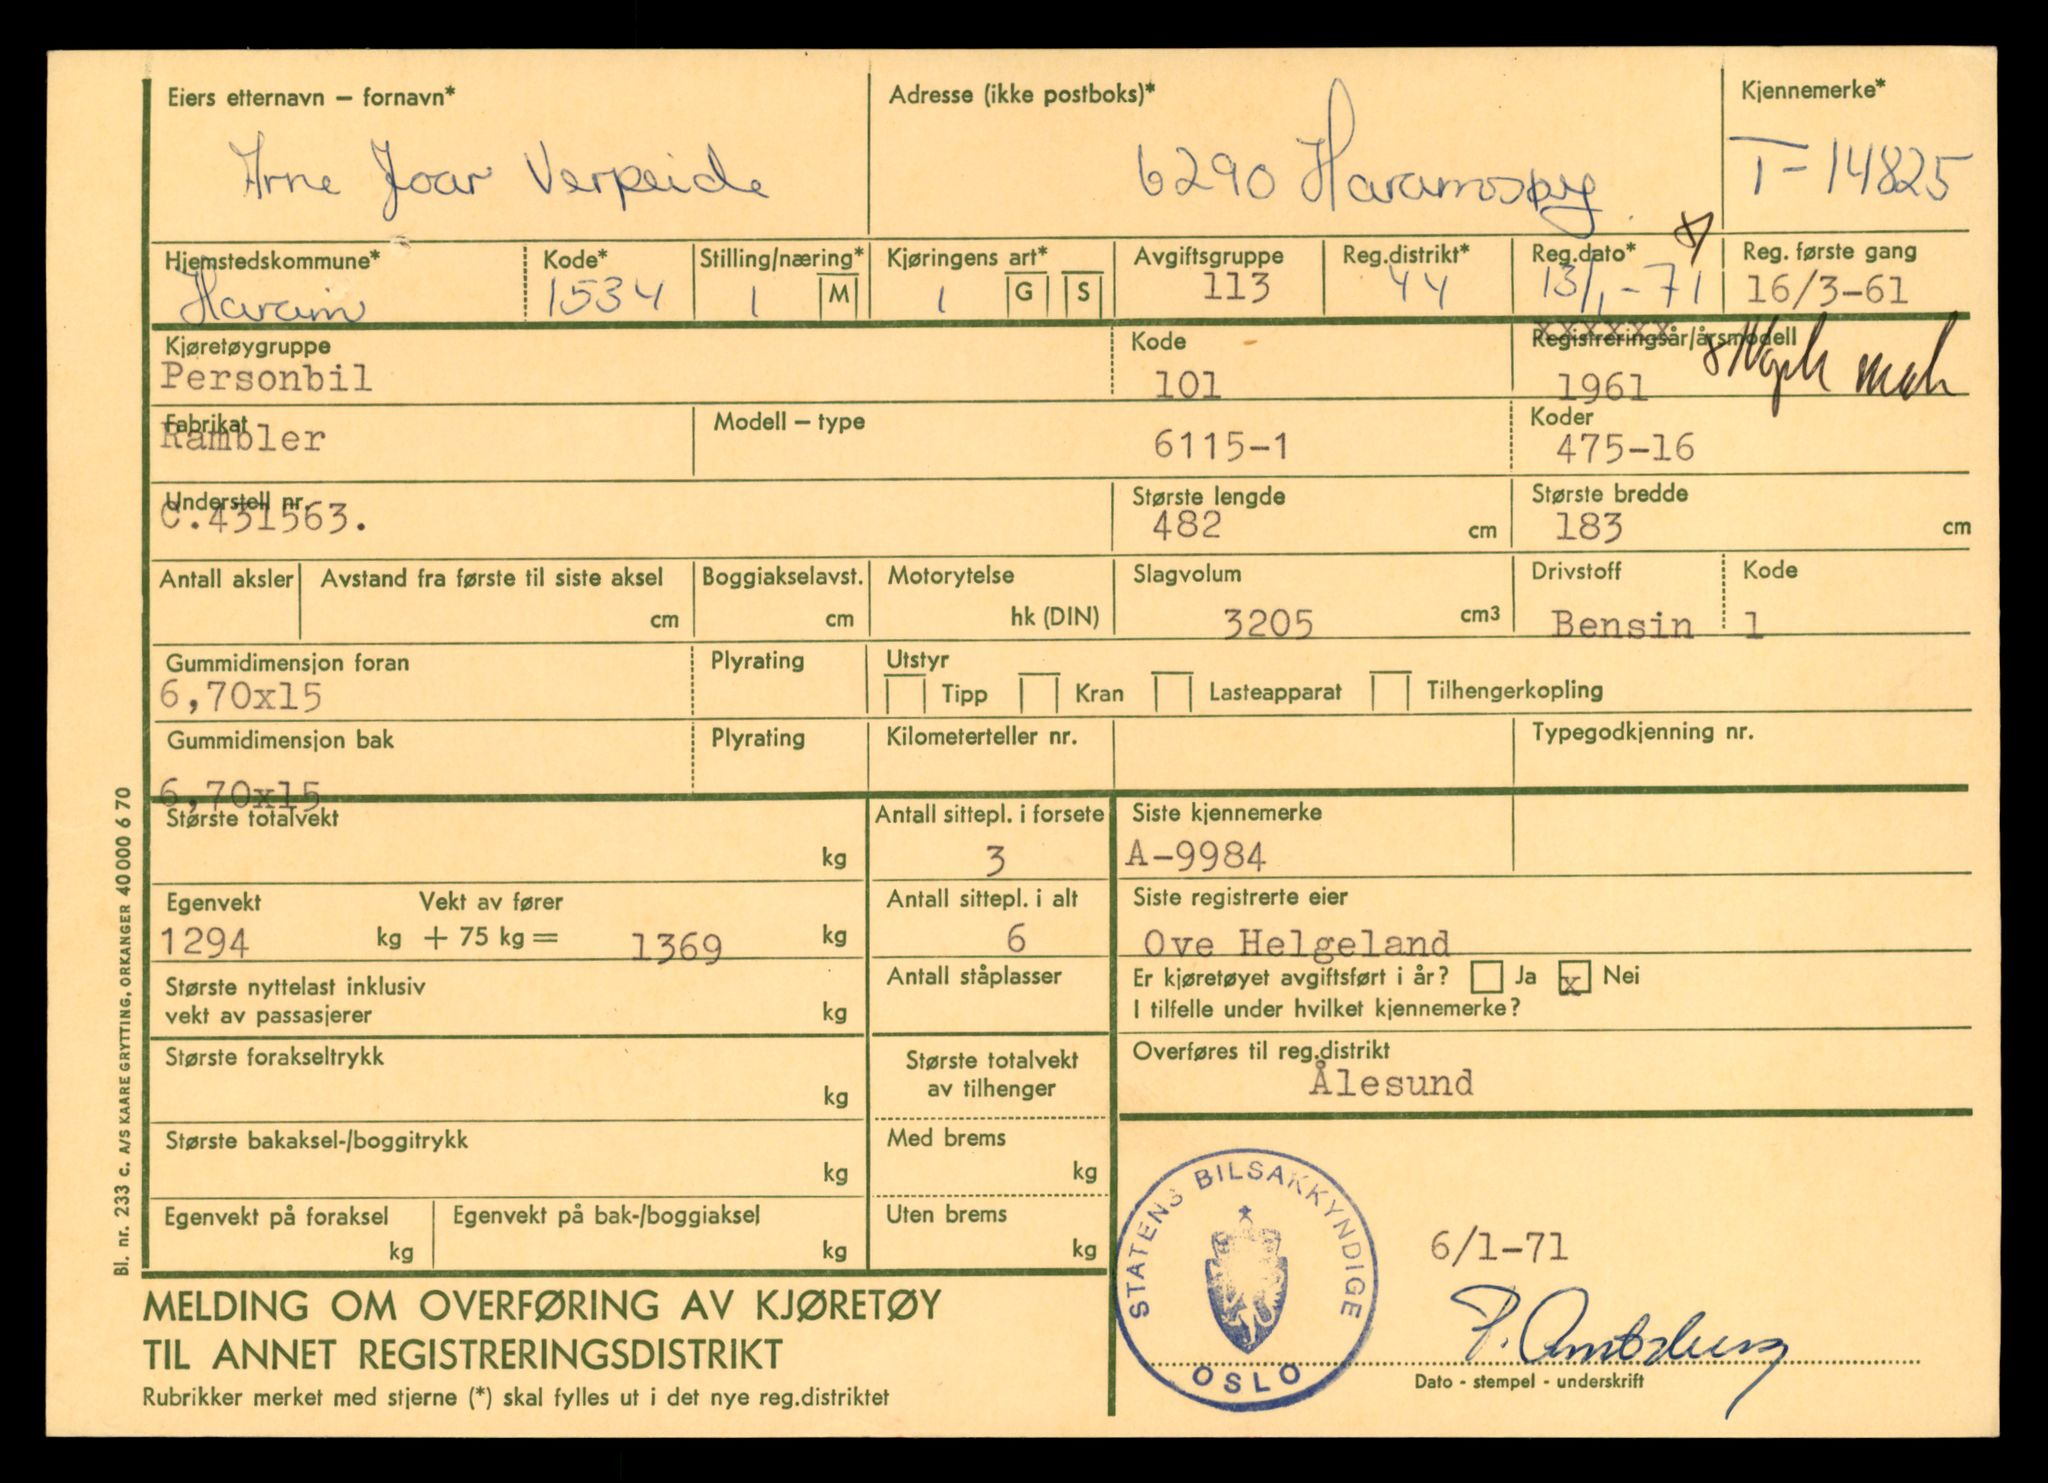 Eiers etternavn – fornavn*
Adresse (ikke postboks)*
Kjennemerke*
Arne Joar Verpeide
6290 Haramsøy
T-14825
Hjemstedskommune*
Kode*
Stilling/næring*
Kjøringens art*
Avgiftsgruppe
Reg.distrikt*
Reg.dato*
Reg. første gang
Haram
1534
1
M
1
G
S
113
44
13/1-71
16/3-61
Kjøretøygruppe
Kode
Registreringsår/årsmodell
Personbil
101
1961
Fabrikat
Modell – type
Koder
Rambler
6115-1
475-16
Understell nr.
Største lengde
Største bredde
C.431563.
482 cm
183 cm
Antall aksler
Avstand fra første til siste aksel
Boggiakselavst.
Motorytelse
Slagvolum
Drivstoff
Kode
cm
cm
hk (DIN)
3205 cm3
Bensin
1
Gummidimensjon foran
Plyrating
Utstyr
6,70x15
Tipp
Kran
Lasteapparat
Tilhengerkopling
Gummidimensjon bak
Plyrating
Kilometerteller nr.
Typegodkjenning nr.
6,70x15
Største totalvekt
kg
Antall sittepl. i forsete
3
Siste kjennemerke
A-9984
Egenvekt
Vekt av fører
1294 kg + 75 kg = 1369 kg
Antall sittepl. i alt
6
Siste registrerte eier
Ove Helgeland
Største nyttelast inklusiv
vekt av passasjerer
kg
Antall ståplasser
Er kjøretøyet avgiftsført i år? Ja x Nei
I tilfelle under hvilket kjennemerke?
Største forakseltrykk
kg
Største totalvekt
av tilhenger
Overføres til reg.distrikt
Ålesund
Største bakaksel-/boggitrykk
kg
Med brems
kg
Egenvekt på foraksel
kg
Egenvekt på bak-/boggiaksel
kg
Uten brems
kg
STATENS BILSAKKYNDIGE
OSLO
6/1-71
Dato - stempel - underskrift
MELDING OM OVERFØRING AV KJØRETØY
TIL ANNET REGISTRERINGSDISTRIKT
Rubrikker merket med stjerne (*) skal fylles ut i det nye reg.distriktet
Bl. nr. 233 c. A/S KAARE GRYTTING, ORKANGER 40000 6 70